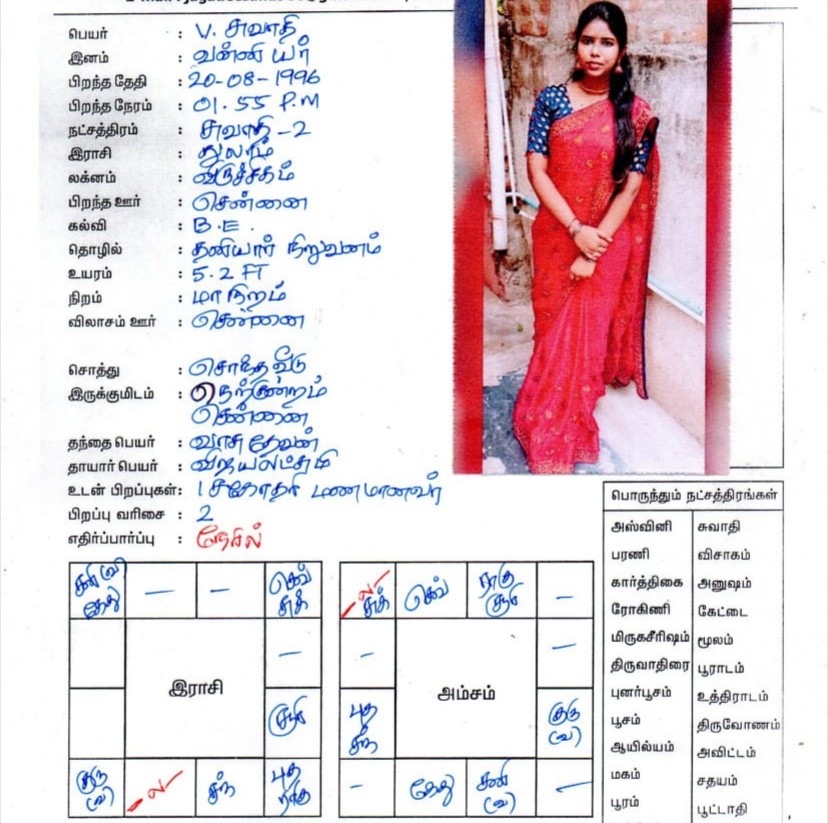 பெயர் : V. சுவாதி
இனம் : வன்னியர்
பிறந்த தேதி : 20-08-1996
பிறந்த நேரம் : 01.55 P.M
நட்சத்திரம் : சுவாதி -2
இராசி : துலாம்
லக்னம் : விருச்சிகம்
பிறந்த ஊர் : சென்னை
கல்வி : B.E.
தொழில் : தனியார் நிறுவனம்
உயரம் : 5.2 FT
நிறம் : மாநிறம்
விலாசம் ஊர் : சென்னை
சொத்து : சொந்த வீடு
இருக்குமிடம் : நெற்குன்றம்
சென்னை
தந்தை பெயர் : வாசுதேவன்
தாயார் பெயர் : விஜயலட்சுமி
உடன் பிறப்புகள்: 1 சகோதரி மணமானவர்
பிறப்பு வரிசை : 2
எதிர்ப்பார்ப்பு :
சனி (வ) கேது
—
—
செவ் சுக்
—
இராசி
சூரி
குரு (வ)
ல
சந்
புத ராகு
ல சுக்
செவ்
ராகு சூரி
—
—
—
அம்சம்
புத சந்
குரு (வ)
—
கேது
சனி (வ)
—
பொருந்தும் நட்சத்திரங்கள்
அஸ்வினி சுவாதி
பரணி விசாகம்
கார்த்திகை அனுஷம்
ரோகிணி கேட்டை
மிருகசீரிஷம் மூலம்
திருவாதிரை பூராடம்
புனர்பூசம் உத்திராடம்
பூசம் திருவோணம்
ஆயில்யம் அவிட்டம்
மகம் சதயம்
பூரம் பூட்டாதி